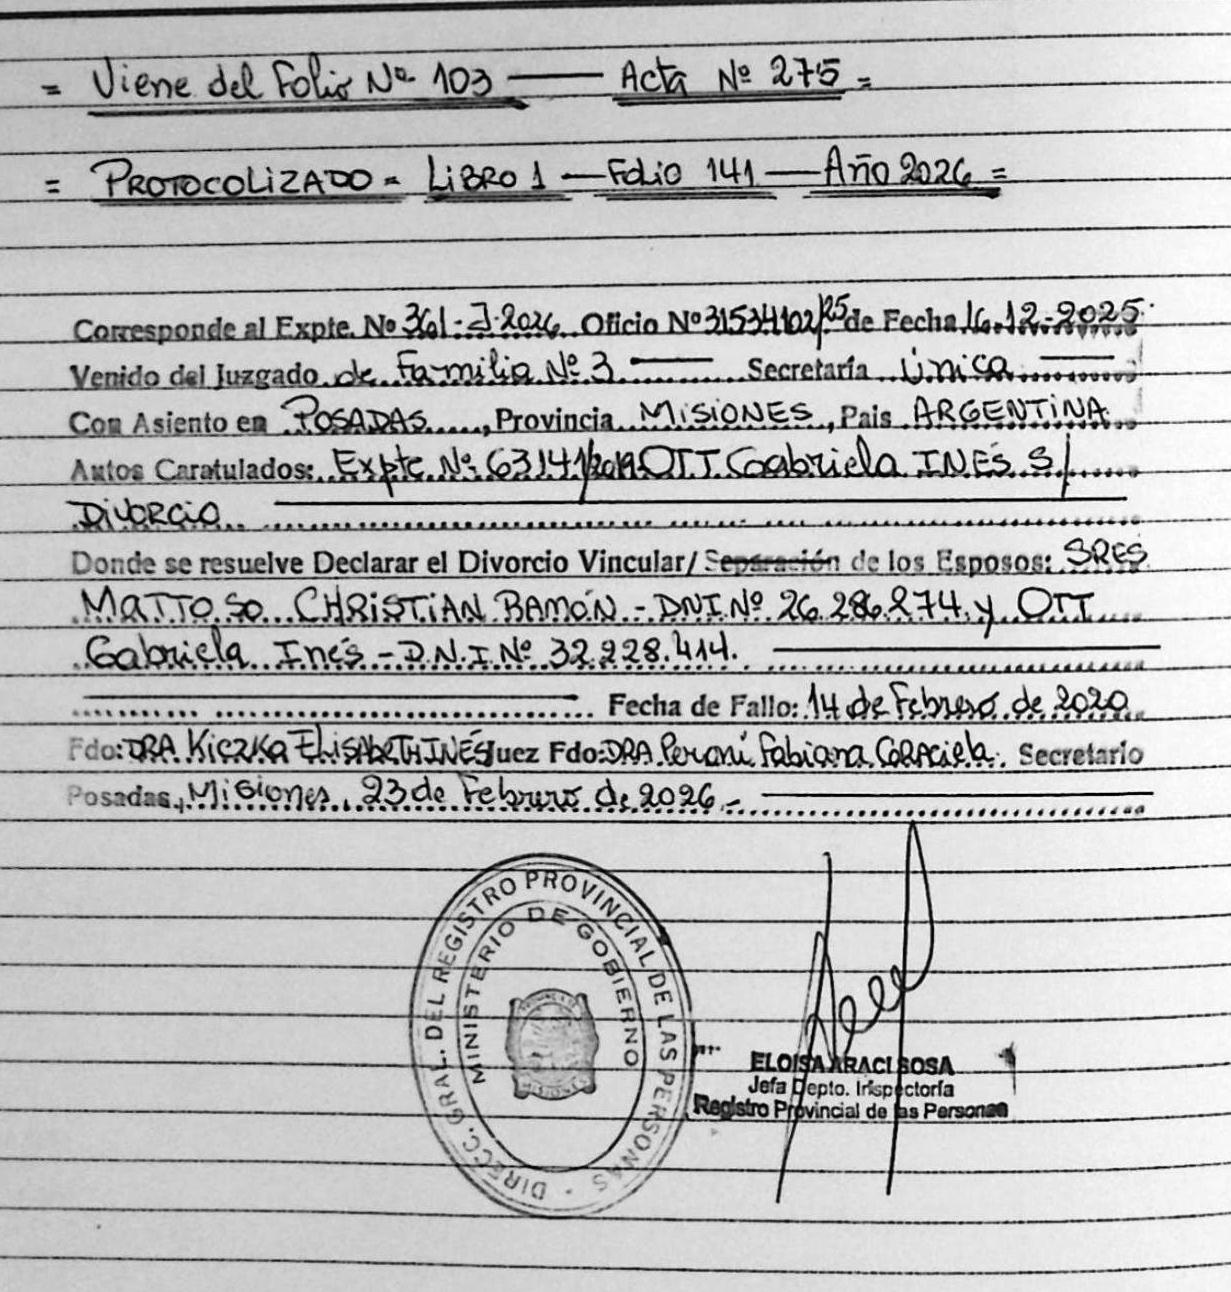 = Viene del Folio Nº 103 —— Acta Nº 275 =
= PROTOCOLIZADO = LIBRO 1 — Folio 141 — Año 2026 =
Corresponde al Expte. Nº 361-J-2026 Oficio Nº 31534102/25 de Fecha 16-12-2025
Venido del Juzgado de Familia Nº 3 —— Secretaría Única ——
Con Asiento en POSADAS, Provincia MISIONES, Pais ARGENTINA
Autos Caratulados: Expte Nº 63141/2019 OTT Gabriela INÉS S/
DIVORCIO
Donde se resuelve Declarar el Divorcio Vincular/ Separación de los Esposos: SRES
MATTOSO CHRISTIAN RAMÓN - DNI. Nº 26.286.274 y OTT
Gabriela Inés - D.N.I Nº 32.228.414.
Fecha de Fallo: 14 de Febrero de 2020
Fdo: DRA KiczKa ELISAbETH INÉS Juez Fdo: DRA Peroni Fabiana GRACiela. Secretario
Posadas, Misiones, 23 de Febrero de 2026.-
DIRECC. GRAL. DEL REGISTRO PROVINCIAL DE LAS PERSONAS
MINISTERIO DE GOBIERNO
ELOISA ARACI SOSA
Jefa Depto. Inspectoría
Registro Provincial de las Personas